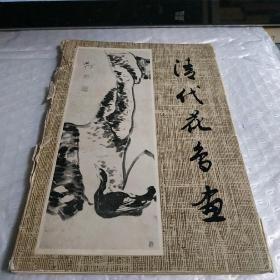 清代花鸟画